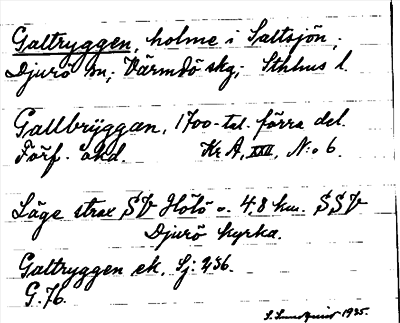 Galtryggen, holme i Saltsjön,
Djurö sn; Värmdö skg; Sthlms l.
Gallbrÿggan, 1700-tal. förra del.
Förf. okd. Kr A, XXII, N:o 6.
Läge strax SV Hölö o. 4,8 km. SSV
Djurö kyrka.
Galtryggen ek. Sj: 236.
G. 76.
1935.